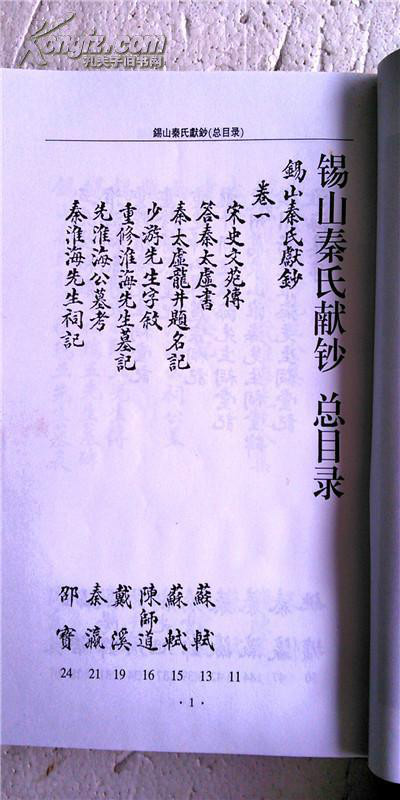 Kongfz.com
孔夫子旧书网
錫山秦氏獻鈔(总目录)
锡山秦氏献钞 总目录
錫山秦氏獻鈔
卷一
宋史文苑傳 11
答秦太虛書 蘇軾 13
秦太虛龍井題名記 蘇軾 15
少游先生字敘 陳師道 16
重修淮海先生墓記 戴溪 19
先淮海公墓考 秦瀛 21
秦淮海先生祠記 邵寶 24
·1·